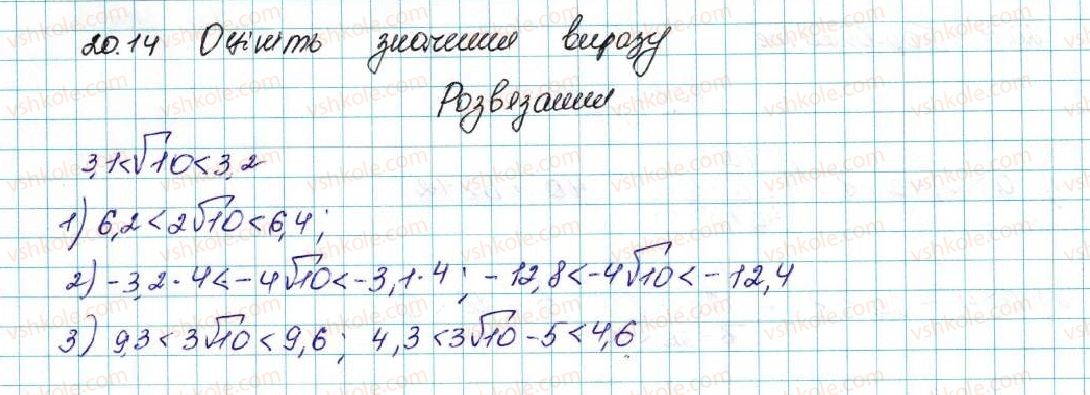 20.14 Оцініть значення виразу
Розвязання
3,1<√10<3,2
1) 6,2<2√10<6,4;
2) -3,2·4<-4√10<-3,1·4; -12,8<-4√10<-12,4
3) 9,3<3√10<9,6; 4,3<3√10-5<4,6